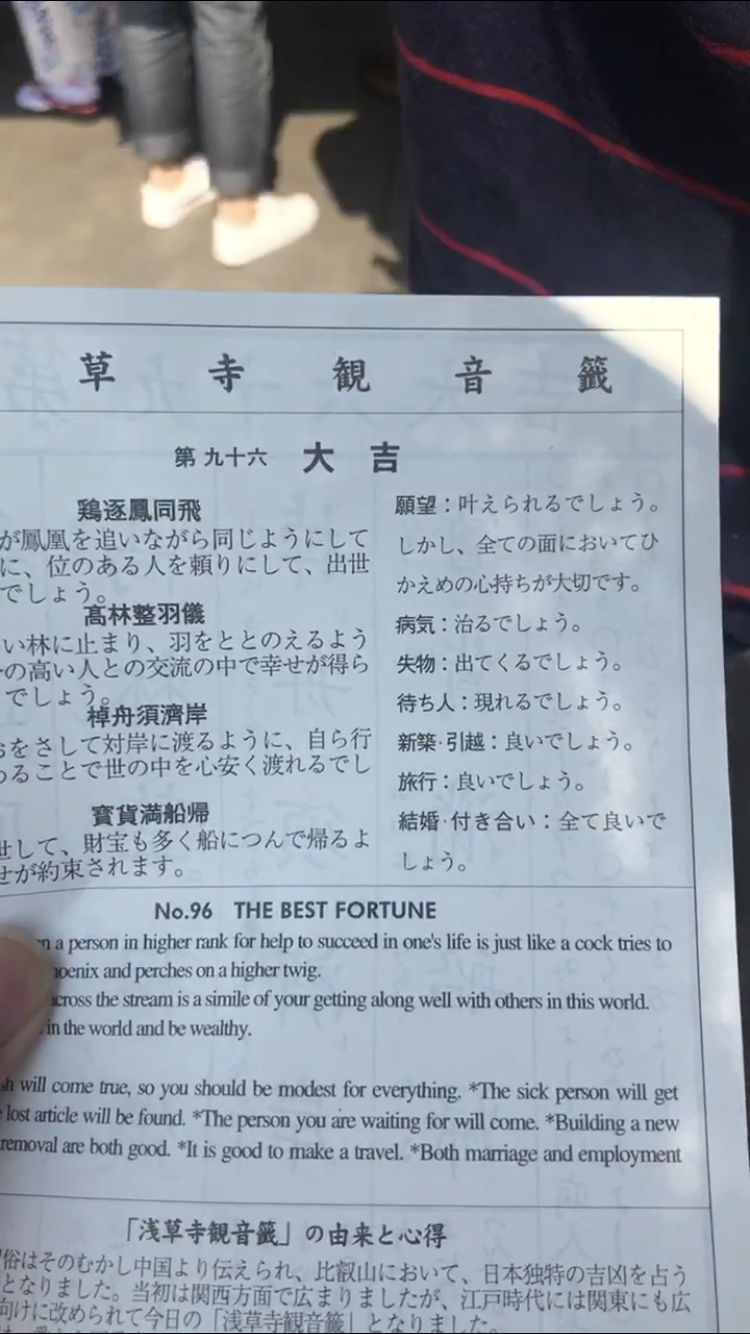 草寺観音籤
第九十六 大吉
鶏逐鳳同飛
が鳳凰を追いながら同じようにして
に、位のある人を頼りにして、出世
でしょう。
高林整羽儀
い林に止まり、羽をととのえるよう
の高い人との交流の中で幸せが得ら
でしょう。
棹舟須濟岸
をさして対岸に渡るように、自ら行
ることで世の中を心安く渡れるでし
寳貨満船帰
世して、財宝も多く船につんで帰るよ
せが約束されます。
願望：叶えられるでしょう。
しかし、全ての面においてひ
かえめの心持ちが大切です。
病気：治るでしょう。
失物：出てくるでしょう。
待ち人：現れるでしょう。
新築·引越：良いでしょう。
旅行：良いでしょう。
結婚·付き合い：全て良いで
しょう。
No.96 THE BEST FORTUNE
a person in higher rank for help to succeed in one's life is just like a cock tries to
and perches on a higher twig.
across the stream is a simile of your getting along well with others in this world.
in the world and be wealthy.
will come true, so you should be modest for everything. *The sick person will get
lost article will be found. *The person you are waiting for will come. *Building a new
removal are both good. *It is good to make a travel. *Both marriage and employment
「浅草寺観音籤」の由来と心得
俗はそのむかし中国より伝えられ、比叡山において、日本独特の吉凶を占う
となりました。当初は関西方面で広まりましたが、江戸時代には関東にも広
向けに改められて今日の「浅草寺観音籤」となりました。